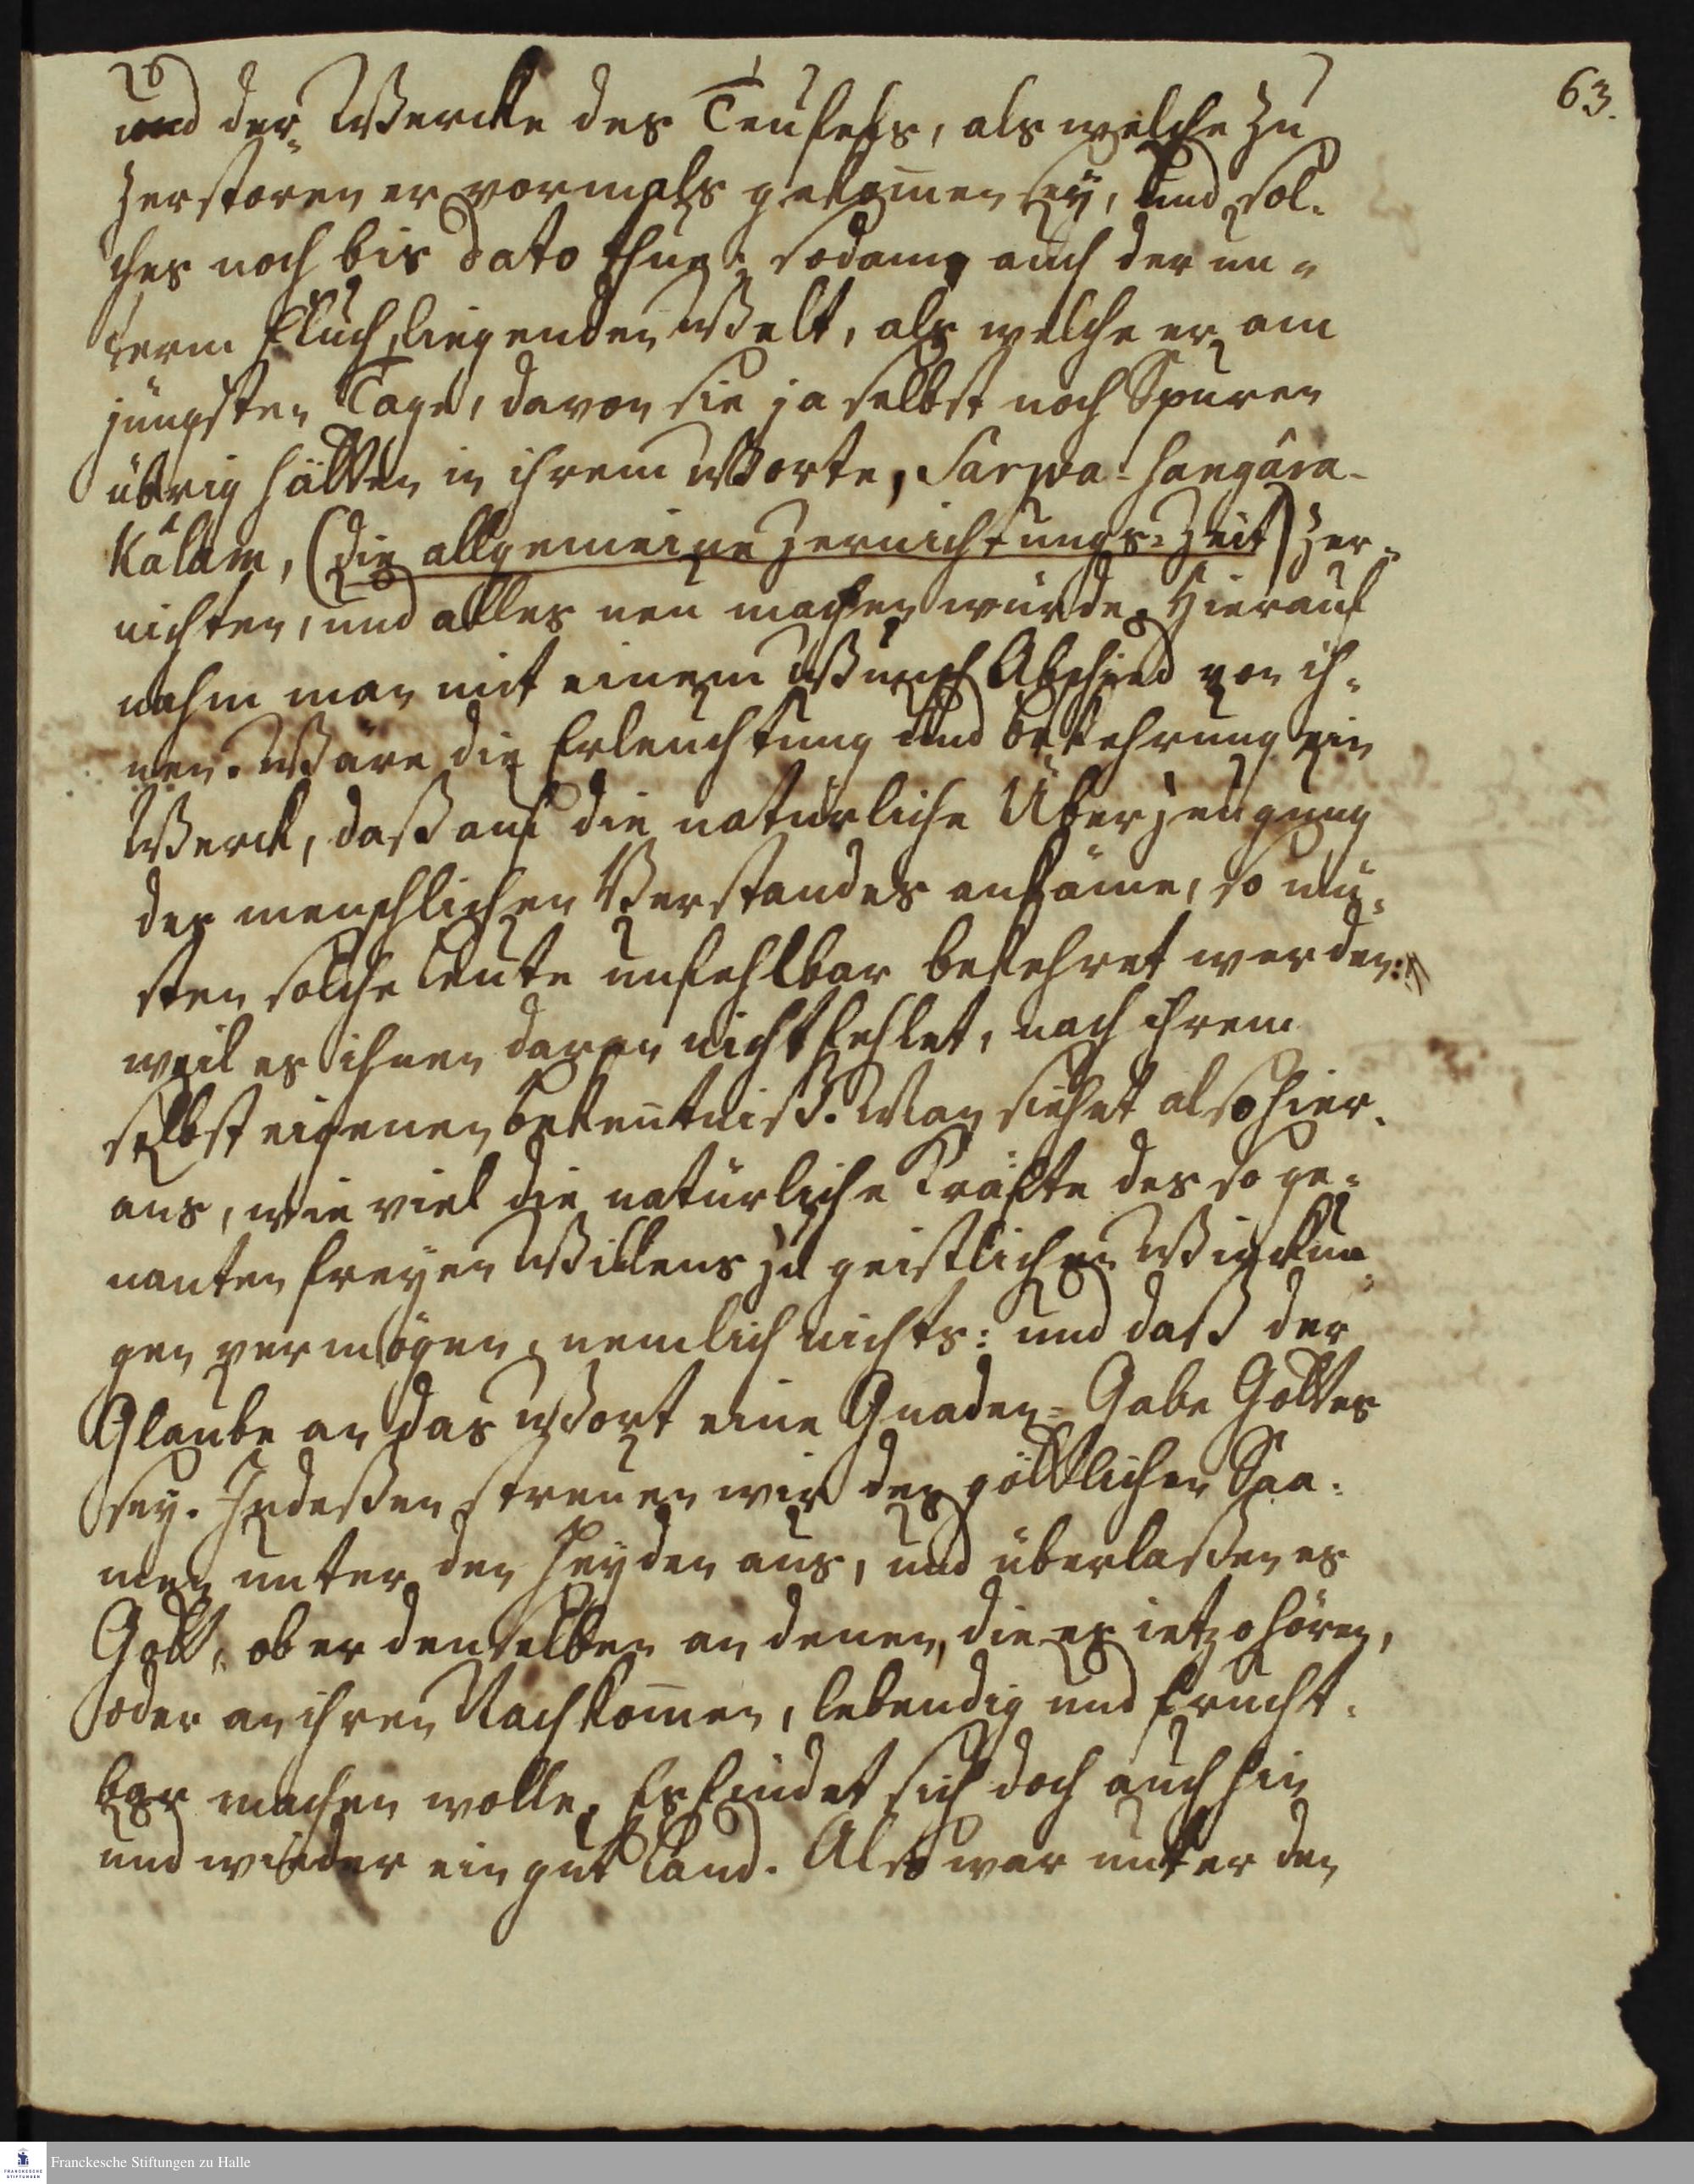 63.
und der Wercke des Teufels, als welche zu
zerstören er vormals gekom̄en sey, und sol-
ches noch bis dato thue; sodann auch der un-
term Fluch liegenden Welt, als welche er am
jüngsten Tage, davon sie ja selbst noch Spuren
übrig hätten in ihrem Worte, Sarwa-Sangâra-
Kâlam, (die allgemeine Zernichtungs-Zeit) zer-
nichten, und alles neu machen würde. Hierauf
nahm man mit einem Wunsch Abschied von ih-
nen. Wäre die Erleuchtung und Bekehrung ein
Werck, daß auf die natürliche Überzeugung
des menschlichen Verstandes ankäme, so mü-
sten solche Leute unfehlbar bekehret werden:
weil es ihnen daran nicht fehlet, nach ihrem
selbst eigenen Beken̄tniß. Man siehet also hier-
aus, wie viel die natürliche Kräfte des so ge-
nanten freyen Willens zu geistlichen Wirckun-
gen vermögen, nemlich nichts: und daß der
Glaube an das Wort eine Gnaden-Gabe Gottes
sey. Indeßen streuen wir den göttlichen Saa-
men unter den Heyden aus, und überlaßen es
Gott, ob er denselben an denen, die es ietzo hören,
oder an ihren Nachkom̄en, lebendig und frucht-
bar machen wolle. Es findet sich doch auch hin
und wieder ein gut Land. Also war unter den
Franckesche Stiftungen zu Halle
FRANCKESCHE
STIFTUNGEN